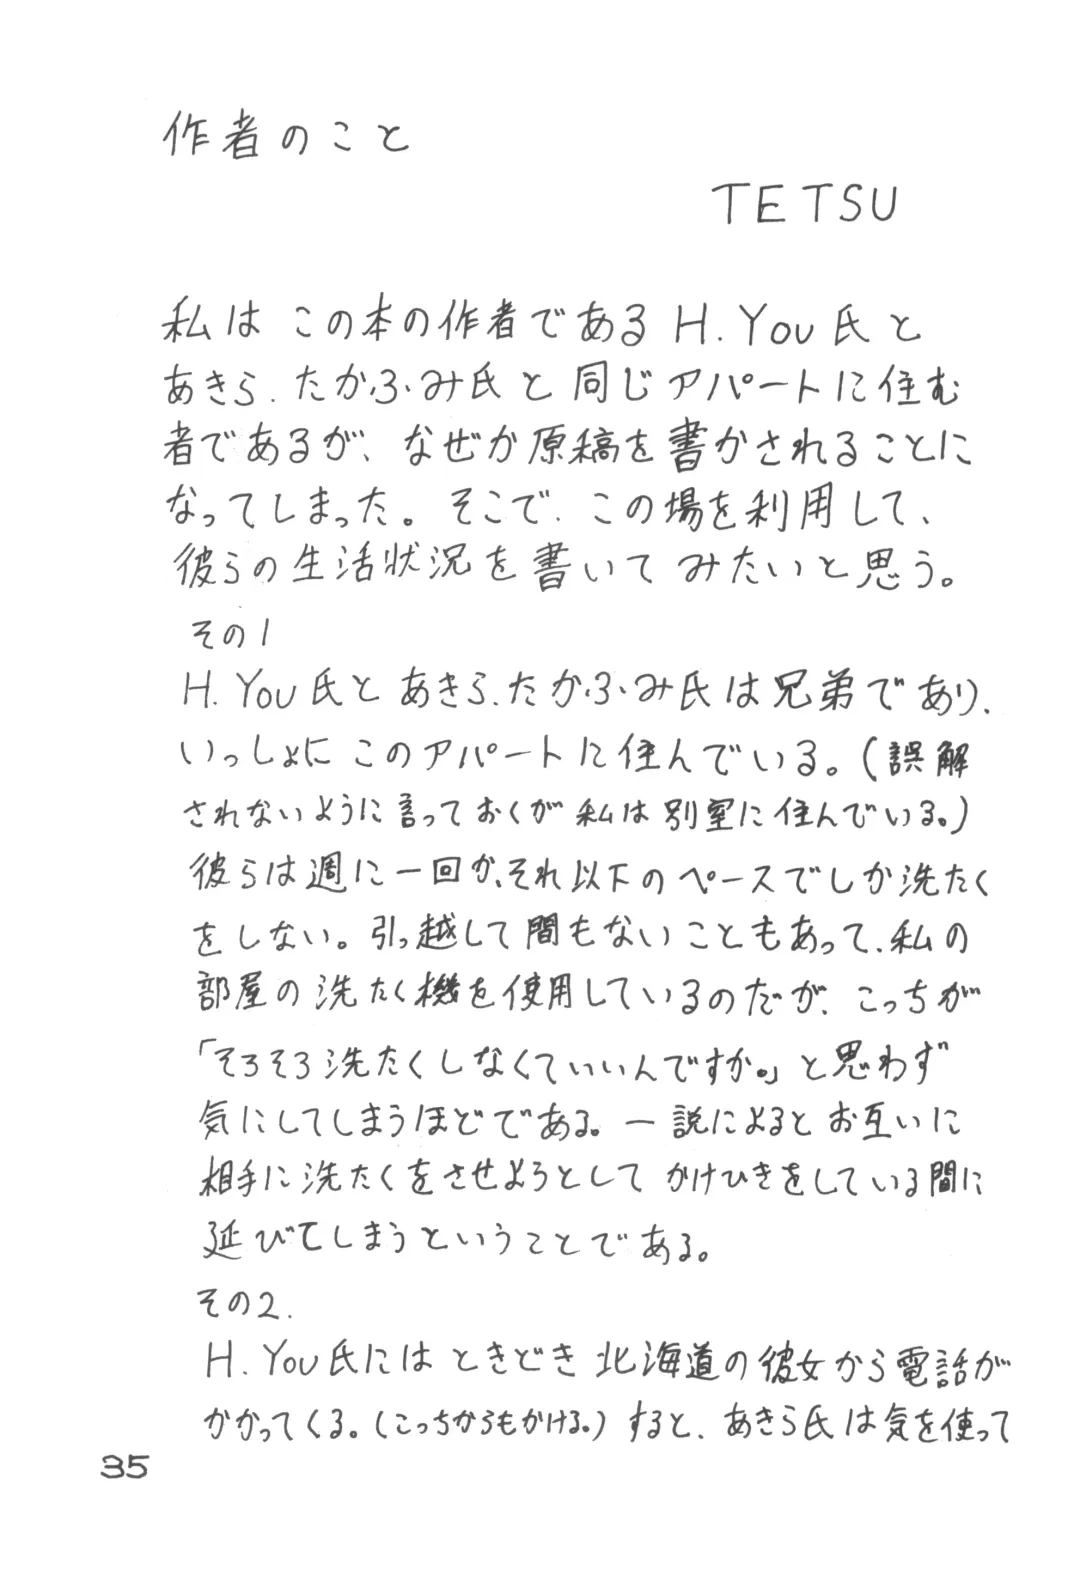 作者のこと
TETSU
私は この本の作者である H.You氏と
あきら.たかふみ氏と 同じアパートに住む
者であるが、なぜか原稿を書かされることに
なってしまった。そこで、この場を利用して、
彼らの生活状況を書いてみたいと思う。
その1
H.You氏と あきら.たかふみ氏は兄弟であり、
いっしょに このアパートに住んでいる。(誤解
されないように言っておくが 私は別室に住んでいる。)
彼らは週に一回か、それ以下のペースでしか洗たく
をしない。引っ越して間もないこともあって、私の
部屋の洗たく機を使用しているのだが、こっちが
「そろそろ洗たくしなくていいんですか。」と思わず
気にしてしまうほどである。一説によると お互いに
相手に洗たくをさせようとして かけひきをしている間に
延びてしまうということである。
その2.
H.You氏には ときどき 北海道の彼女から電話が
かかってくる。(こっちからもかける。) すると、あきら氏は気を使って
35